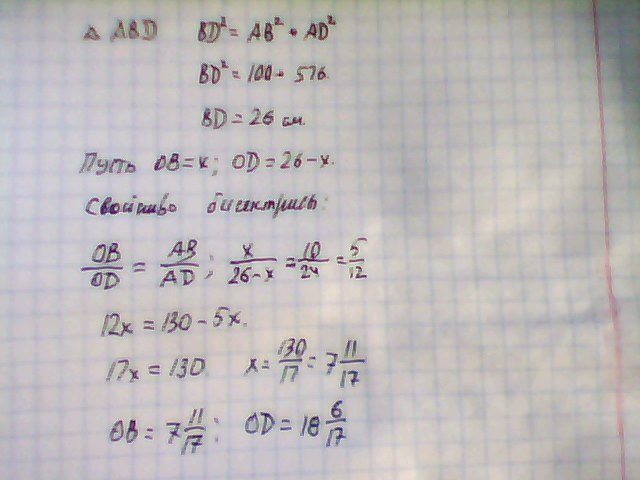 △ ABD BD² = AB² + AD²
BD² = 100 + 576
BD = 26 см.
Пусть OB = x; OD = 26 - x.
Свойство биссектрисы:
OB/OD = AB/AD; x/(26-x) = 10/24 = 5/12
12x = 130 - 5x.
17x = 130 x = 130/17 = 7 11/17
OB = 7 11/17; OD = 18 6/17